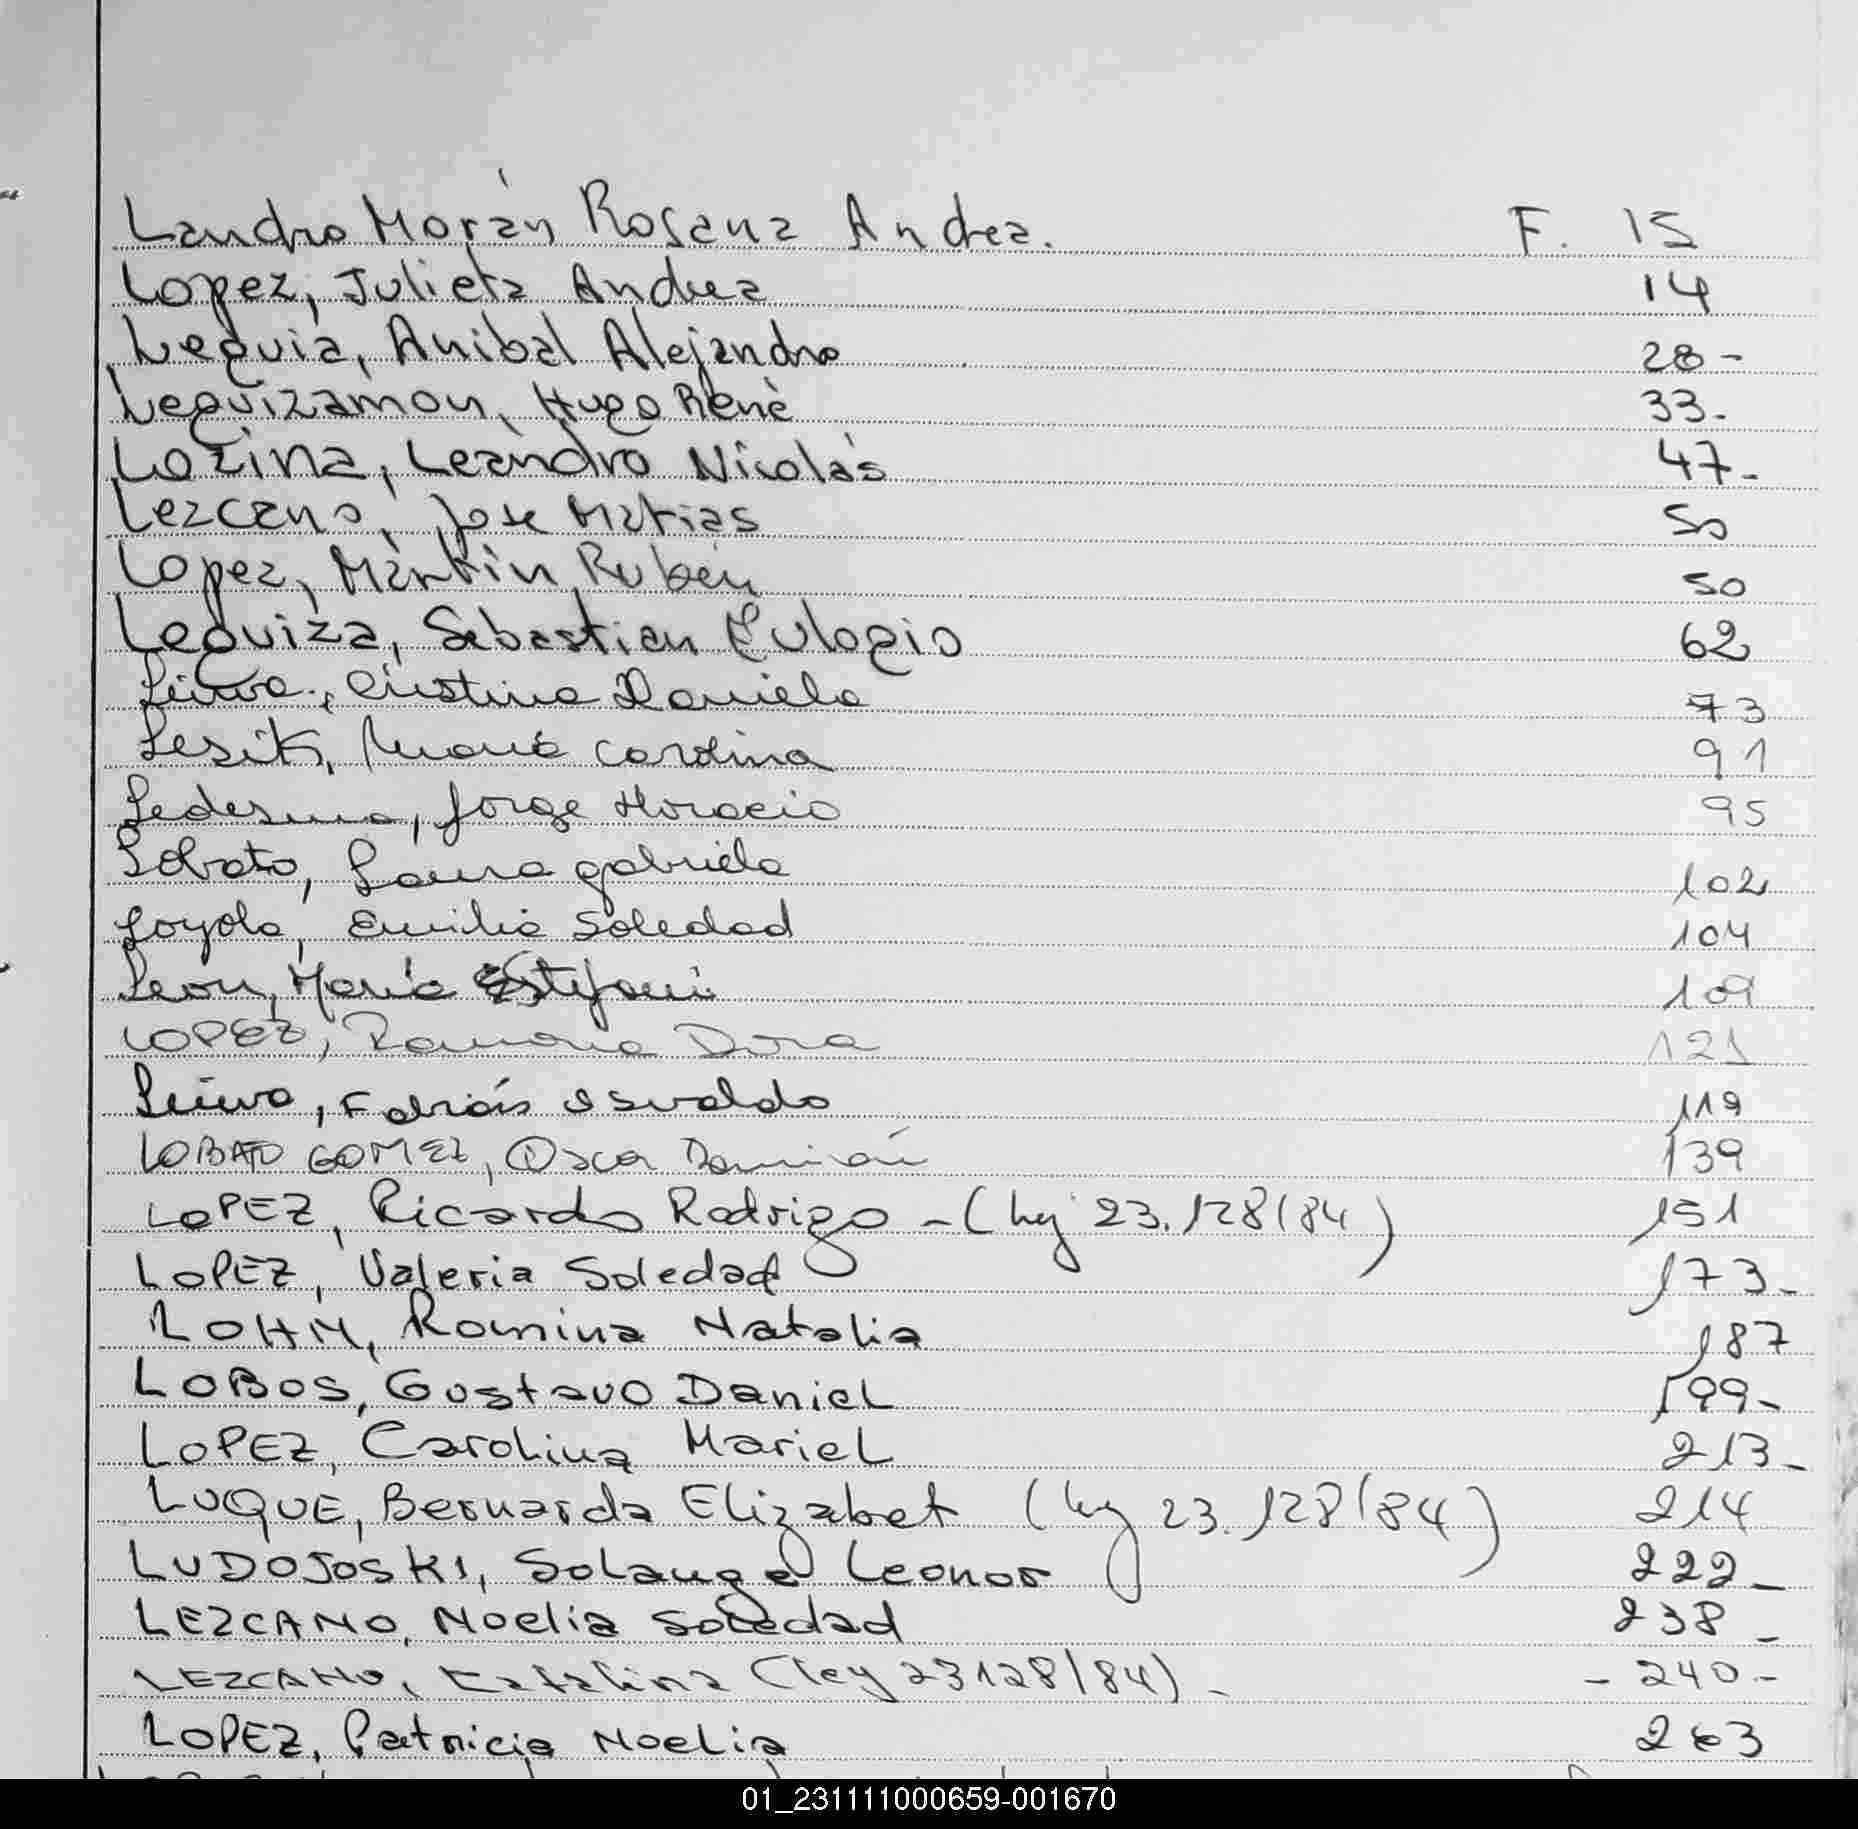 Landro Morán Rosana Andrea. F. 15
Lopez, Julieta Andrea 14
Leguia, Anibal Alejandro 28-
Leguizamon, Hugo Renè 33-
Lozina, Leandro Nicolás 47-
Lezcano, Jose Matias 50
Lopez, Martin Rubén 50
Leguiza, Sebastian Eulogio 62
Leiva, Cristina Daniela 73
Lesik, María Carolina 91
Ledesma, Jorge Horacio 95
Lobato, Laura gabriela 102
Loyola, Emilia Soledad 104
Leon, María Estefani 109
LOPEZ, Ramona Dora 121
Leiva, Fabián Osvaldo 119
LOBATO GOMEZ, Oscar Damián 139
LOPEZ, Ricardo Rodrigo - (ley 23.128/84) 151
LOPEZ, Valeria Soledad 173-
LOHM, Romina Natalia 187
LOBOS, Gustavo Daniel 199-
LOPEZ, Carolina Mariel 213-
LUQUE, Bernarda Elizabet (ley 23.128/84) 214
LUDOJOSKI, Solange Leonor 222-
LEZCANO, Noelia Soledad 238-
LEZCANO, Catalina (ley 23128/84) - - 240-
LOPEZ, Patricia Noelia 263
01_231111000659-001670